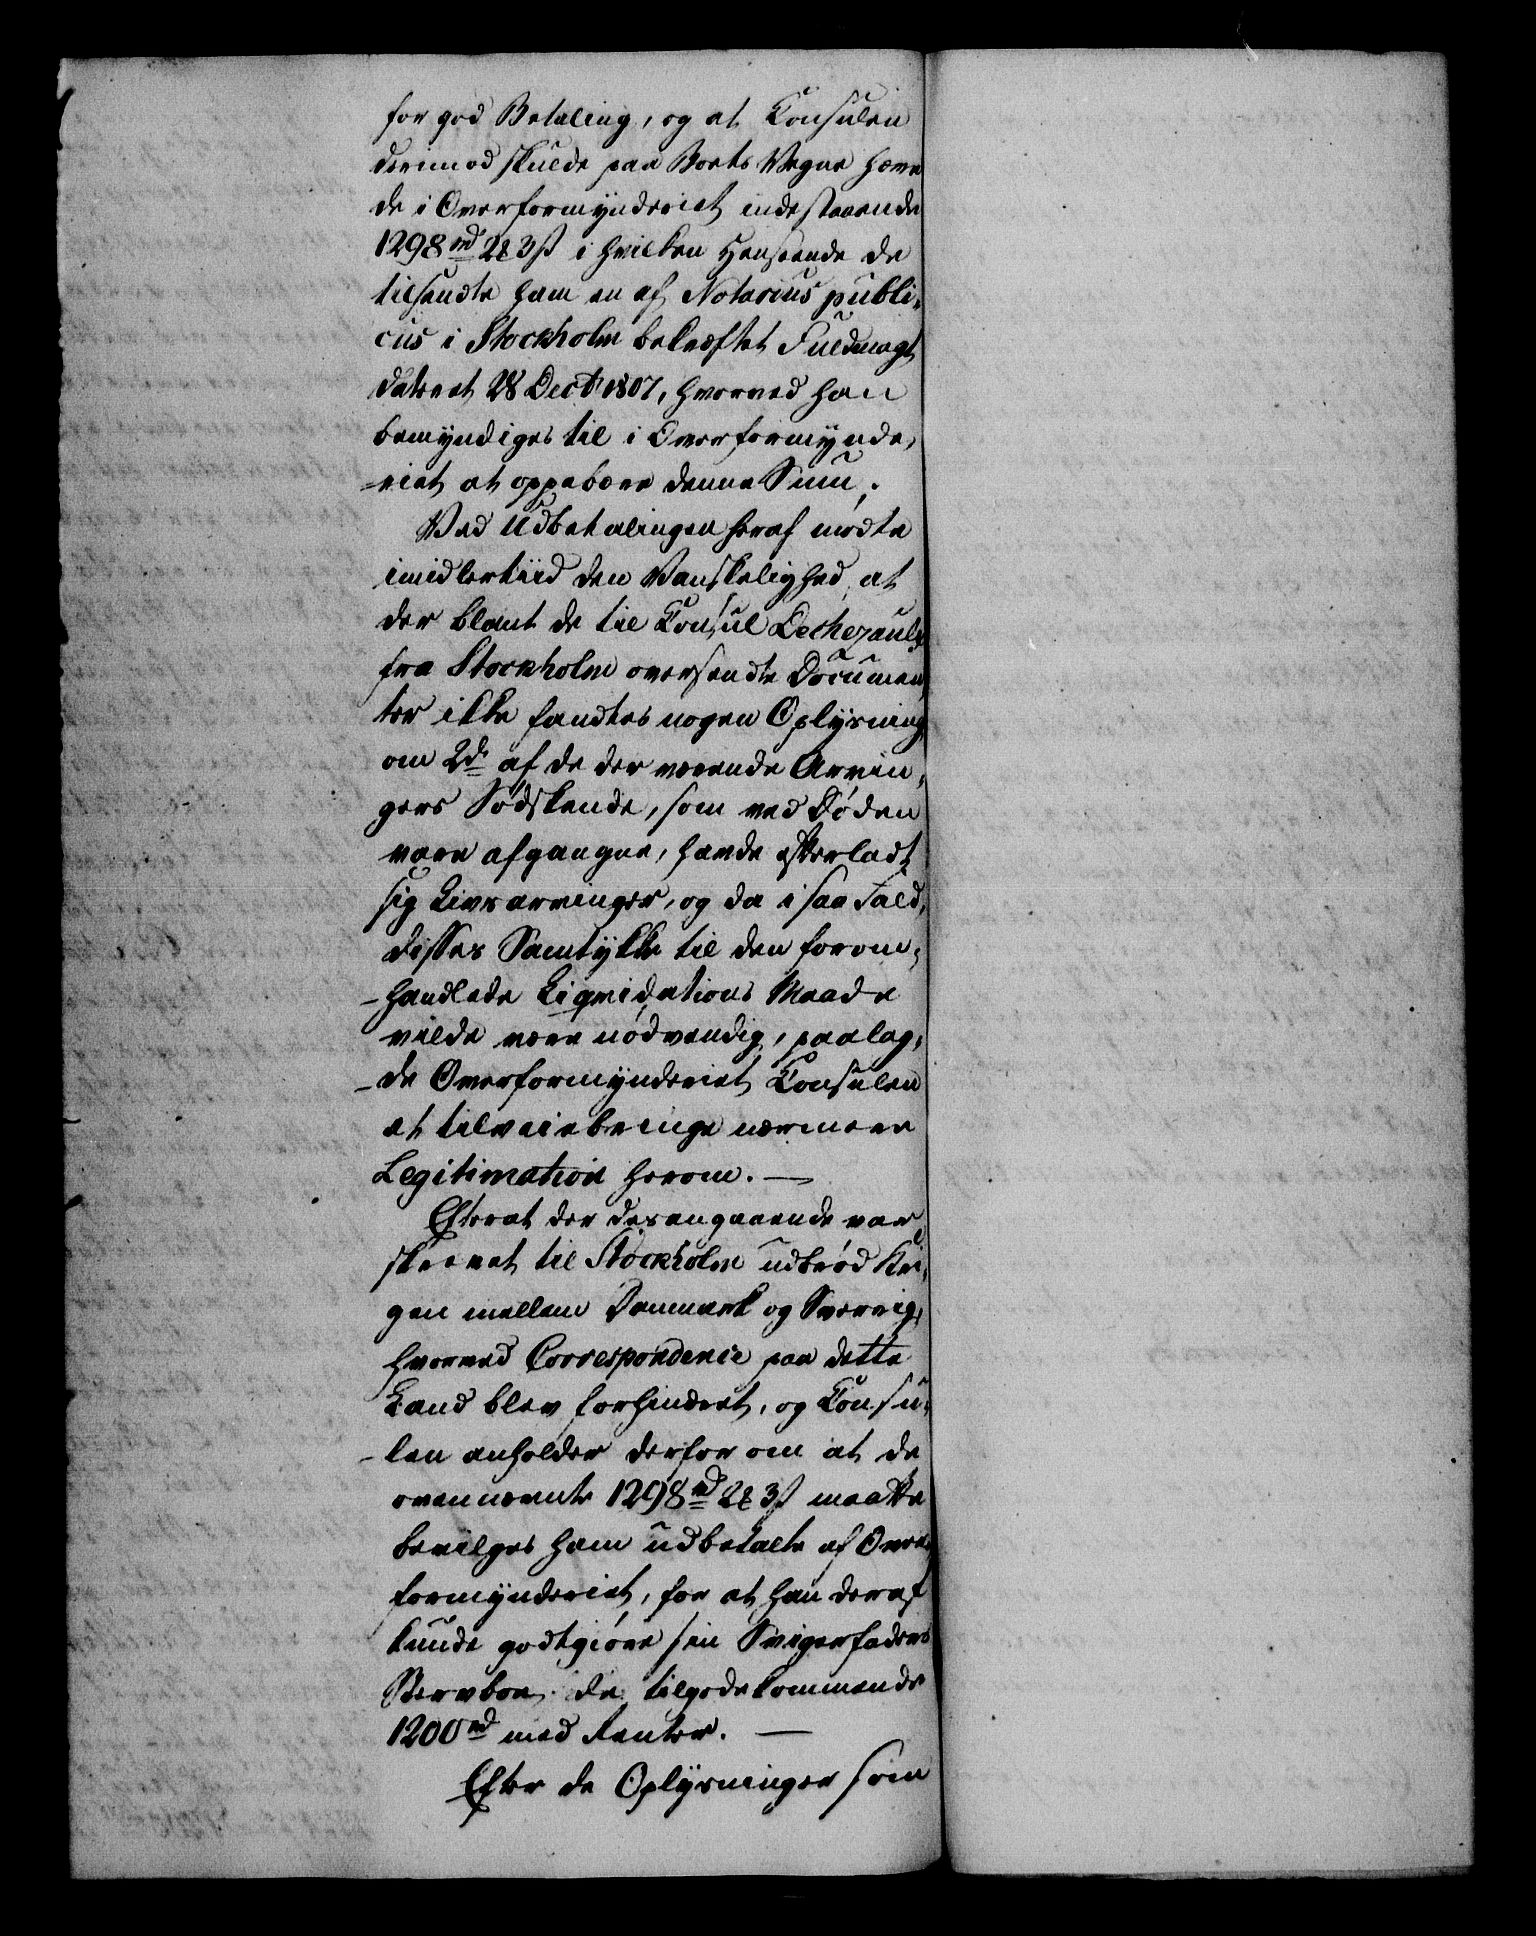 for god Betaling, og at Consulen
derimod skulde paa Boets Vegne hæve
de i Overformynderiet indestaaende
1298 rd 2 ℳ 3 ß i hvilken Henseende de
tilsendte ham en af Notarius publi-
cus i Stockholm bekræftet Fuldmagt
dateret 28 Decbr 1807, hvorved han
bemyndiges til i Overformynde-
-riet at oppebære denne Sum.
Ved Udbetalingen heraf mødte
imidlertiid den Vanskelighed, at
der blant de til Consul Dechezaulx
fra Stockholm oversendte Documen
ter ikke fandtes nogen Oplysning
om 2de af de der værende Arvin-
gers Sødskende, som ved Døden
vare afgangne, havde efterladt
sig Livsarvinger, og da i saa Fald,
disses Samtykke til den forom-
-handlede Liqvidations Maade
vilde være nødvendig, paalag-
-de Overformynderiet Consulen
at tilveiebringe nærmere
Legitimation herom. —
Efterat der desangaaende var
skrevet til Stockholm udbrød Kri-
gen mellem Danmark og Sverrig,
hvorved Correspondence paa dette
Land blev forhindret, og Consu-
-len anholder derfor om at de
ovennævnte 1298 rd 2 ℳ 3 ß maatte
bevilges ham udbetalte af Over-
formynderiet, for at han deraf
kunde godtgiøre sin Svigerfaders
Stervboe de tilgodekommende
1200 rd med Renter. —
Efter de Oplysninger som